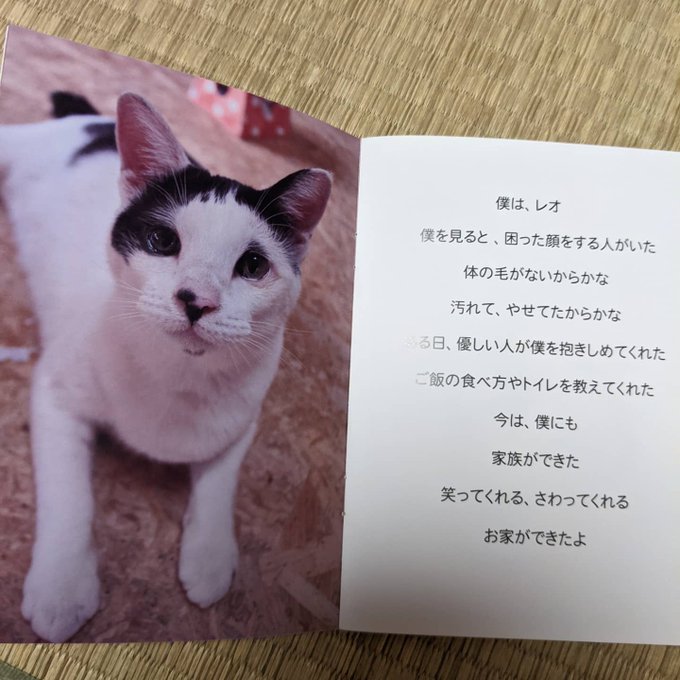 僕は、レオ
僕を見ると、困った顔をする人がいた
体の毛がないからかな
汚れて、やせてたからかな
ある日、優しい人が僕を抱きしめてくれた
ご飯の食べ方やトイレを教えてくれた
今は、僕にも
家族ができた
笑ってくれる、さわってくれる
お家ができたよ